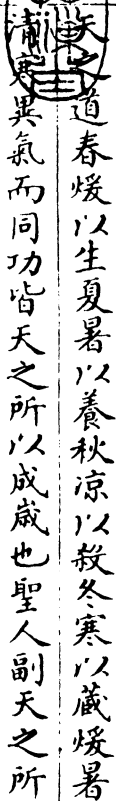 天之道春煖以生夏暑以養秋凉以殺冬寒以藏煖暑
清寒異氣而同功皆天之所以成歲也聖人副天之所